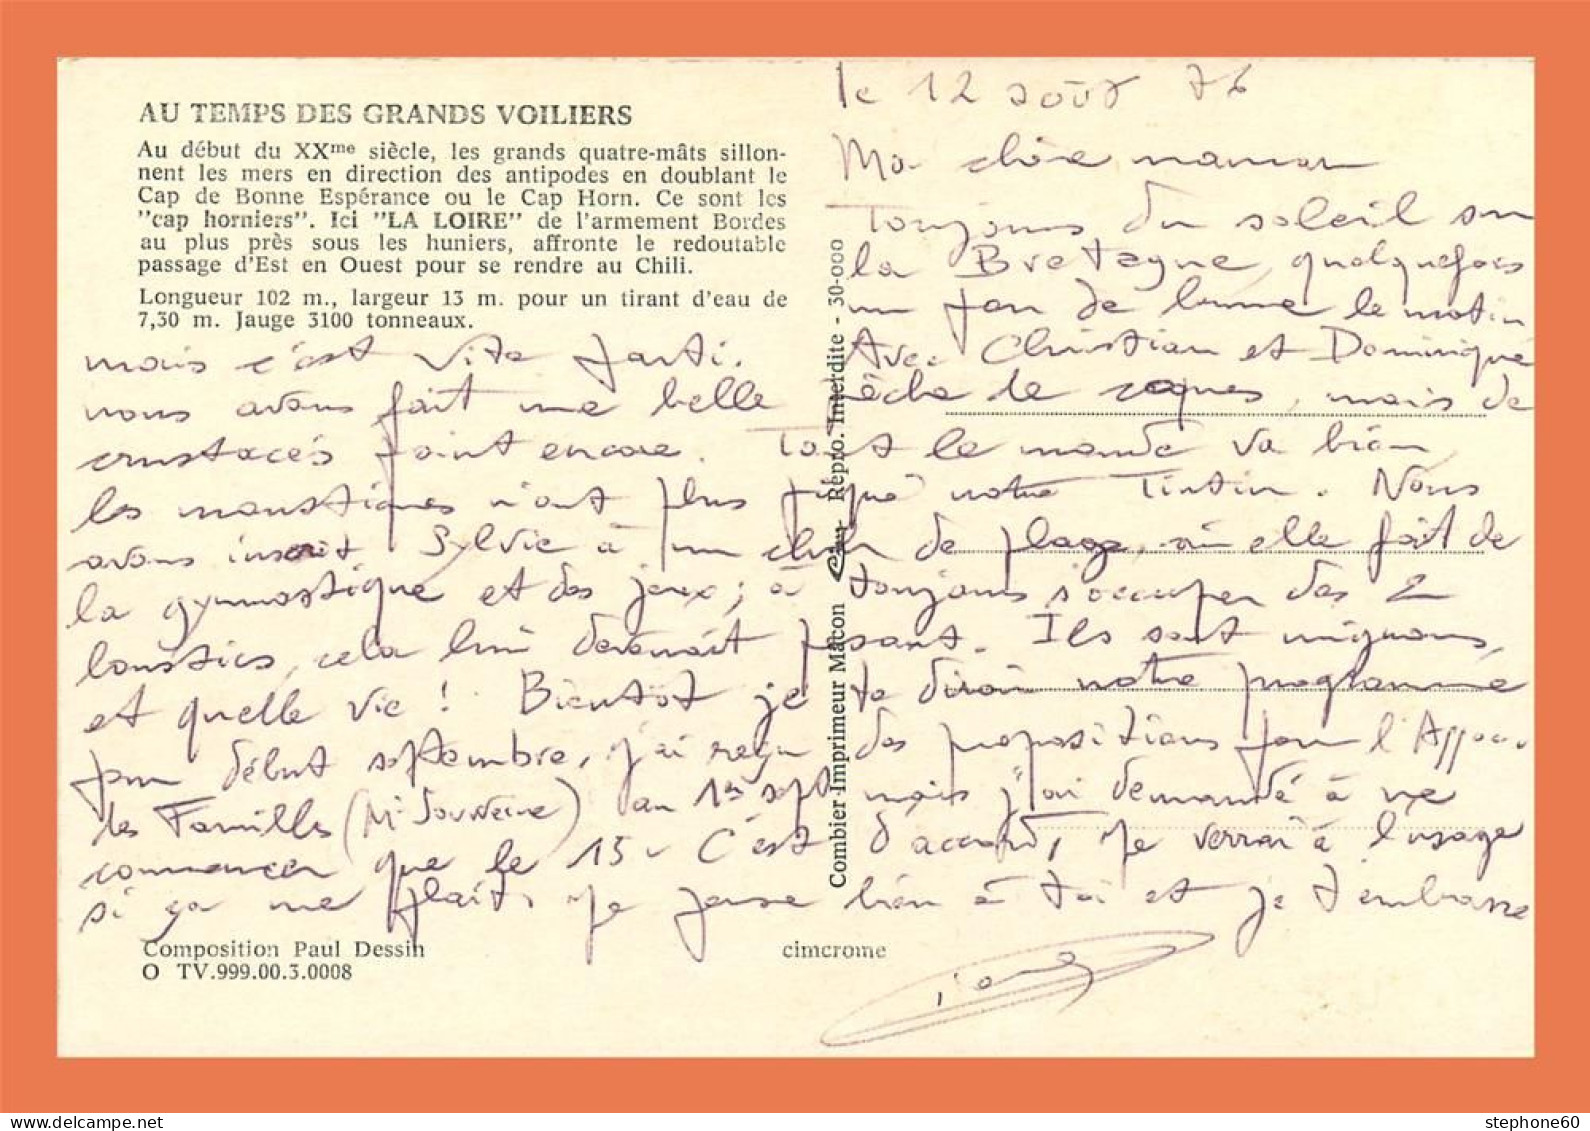 AU TEMPS DES GRANDS VOILIERS
Au début du XXme siècle, les grands quatre-mâts sillon-
nent les mers en direction des antipodes en doublant le
Cap de Bonne Espérance ou le Cap Horn. Ce sont les
"cap horniers". Ici "LA LOIRE" de l'armement Bordes
au plus près sous les huniers, affronte le redoutable
passage d'Est en Ouest pour se rendre au Chili.
Longueur 102 m., largeur 13 m. pour un tirant d'eau de
7,30 m. Jauge 3100 tonneaux.
le 12 août 76
Ma chère maman
Toujours du soleil sur
la Bretagne, quelquefois
un peu de brume le matin
mais c'est vite parti. Avec Christian et Dominique
nous avons fait une belle pêche de coques, mais de
crustacés point encore. Tout le monde va bien
les moustiques n'ont plus piqué notre Tintin. Nous
avons inscrit Sylvie à un club de plage, où elle fait de
la gymnastique et des jeux; à toujours s'occuper des 2
loustics, cela lui devenait pesant. Ils sont mignons,
et quelle vie ! Bientôt je te dirai notre programme
pour début septembre, j'ai reçu des propositions pour l'
des Familles (Mr ) au 1er sept mais j'ai demandé à ne
commencer que le 15. C'est d'accord, je verrai à l'usage
si ça me plait. Je pense bien à toi et je t'embrasse
Combier Imprimeur Mâcon Cim Repro. Interdite - 30-000
Composition Paul Dessin
O TV.999.00.3.0008
cimcrome
stephone60